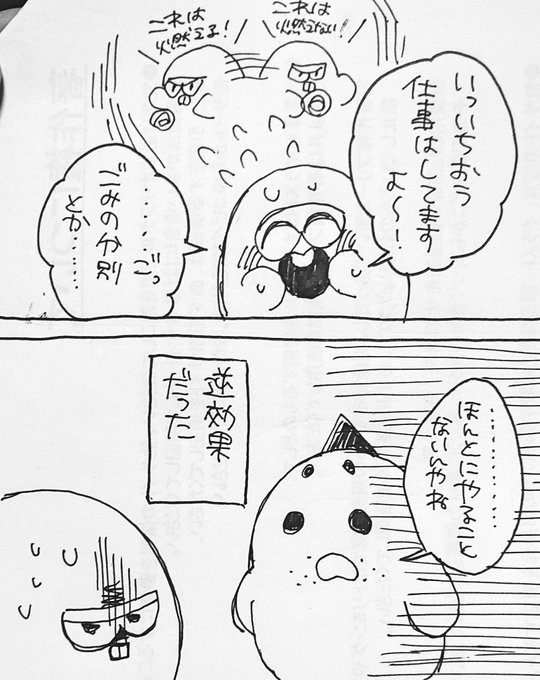 これは
燃えない！
これは
燃える！
いっいちおう
仕事はしてます
よ〜！
………ごっ
ごみの分別
とか……
…………
ほんとにやること
ないんやね
逆効果
だった